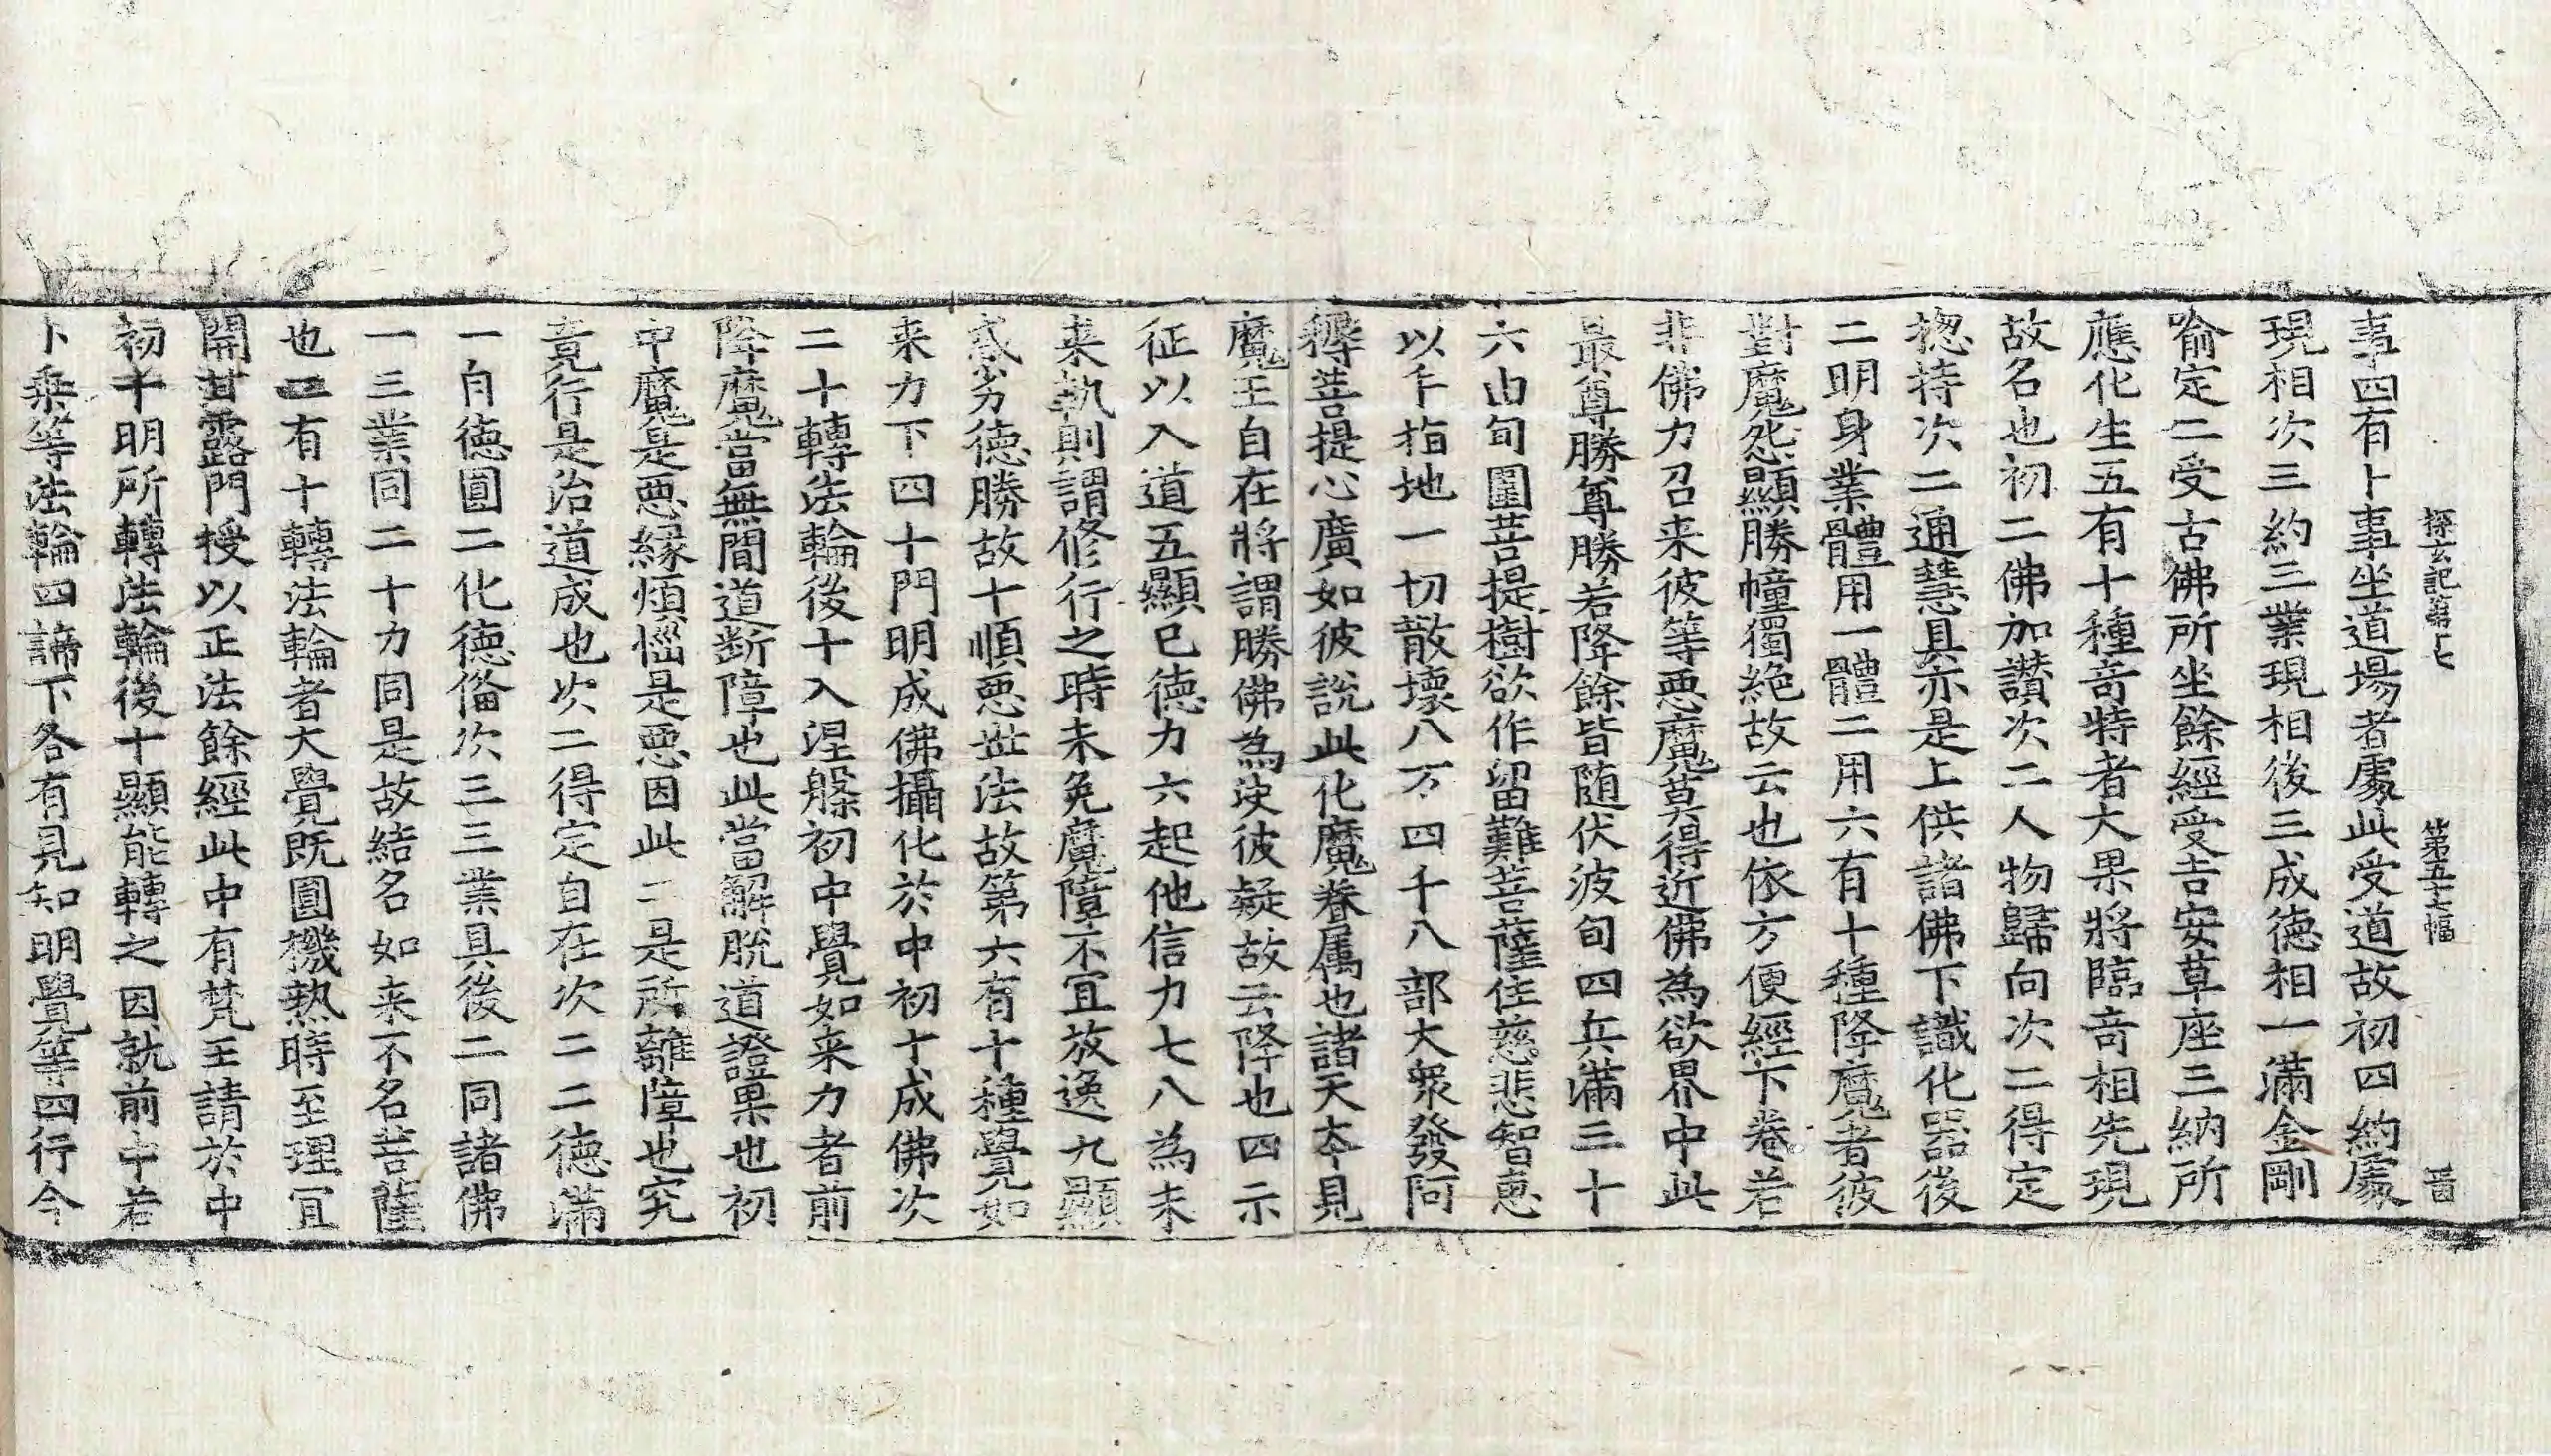 探玄記第十七　第五十七幅　晉
事四有卜事坐道場者處此受道故初四約處
現相次三約三業現相後三成德相一滿金剛
喻定二受古佛所坐餘經受吉安草座三納所
應化生五有十種奇特者大果將臨奇相先現
故名也初二佛加讚次二人物歸向次二得定
揔持次二通慧具亦是上供諸佛下識化器後
二明身業體用一體二用六有十種降魔者彼
對魔怨顯勝幢獨絶故云也依方便經下卷若
非佛力召来彼等惡魔莫得近佛為欲界中此
最尊勝尊勝若降餘皆随伏波旬四兵滿三十
六由旬圍菩提樹欲作留難菩薩住慈悲智惠
以手指地一切散壞八万四千八部大衆發阿
耨菩提心廣如彼說此化魔眷属也諸天夲見
魔王自在將謂勝佛為決彼疑故云降也四示
征以入道五顯已德力六起他信力七八為未
来執則謂修行之時未免魔障不宜放逸九顯
惑劣德勝故十順惡世法故第六有十種覺如
来力下四十門明成佛攝化於中初十成佛次
二十轉法輪後十入涅槃初中覺如来力者前
降魔當無間道斷障也此當解脫道證果也初
中魔是惡縁煩惱是惡因此二是所離障也究
竟行是治道成也次二得定自在次二二德滿
一自德圓二化德俻次三三業具後二同諸佛
一三業同二十力同是故結名如来不名菩薩
也二有十轉法輪者大覺既圓機熱時至理宜
開甘露門授以正法餘經此中有梵王請於中
初十明所轉法輪後十顯能轉之因就前中若
卜乘等法輪四諦下各有見知明覺等四行今